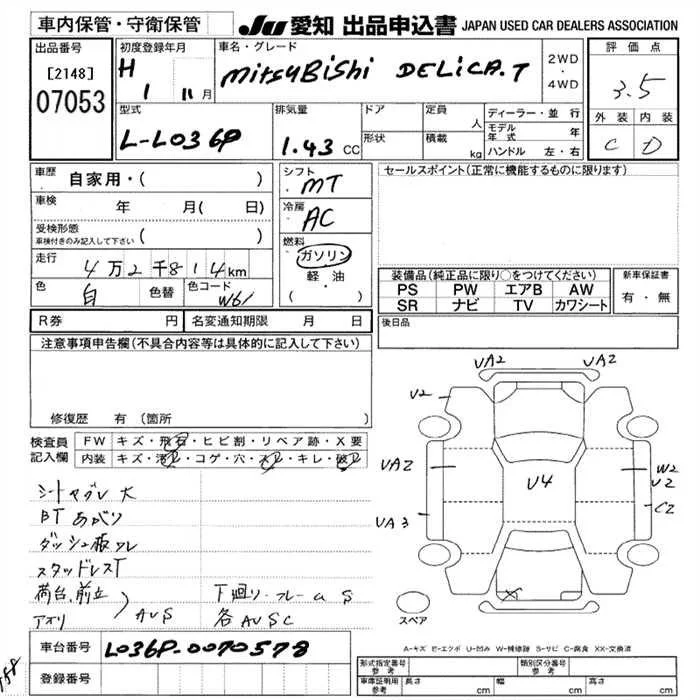 車内保管・守衛保管
JU 愛知 出品申込書 JAPAN USED CAR DEALERS ASSOCIATION
出品番号
[2148]
07053
初度登録年月
H 1 11月
車名・グレード
MITSUBISHI DELICA.T
2WD
・
4WD
評価点
3.5
型式
L-L036P
排気量
1.43 CC
ドア
形状
定員
人
積載
kg
ディーラー・並行
モデル年式 年
ハンドル 左・右
外装 内装
C D
車歴
自家用・( )
車検
年 月( 日)
受検形態
車検付きのみ記入して下さい ( )
走行
4万2千814km
色
白
色替
色コード
W61
シフト
MT
冷房
AC
燃料
ガソリン
軽・油
( ・ )
セールスポイント(正常に機能するものに限ります)
装備品(純正品に限り○をつけてください)
PS PW エアB AW
SR ナビ TV カワシート
新車保証書
有・無
R券 円 名変通知期限 月 日
後日品
注意事項申告欄(不具合内容等は具体的に記入して下さい)
修復歴 有(箇所 )
検査員
記入欄
FW キズ・飛石・ヒビ割・リペア跡・X要
内装 キズ・汚レ・コゲ・穴・スレ・キレ・破レ
シートヤブレ大
BTあがり
ダッシュ板ワレ
スタッドレスT
荷台、前立
アオリ
AUS
下廻り・フレームS
各AUSC
UA2 UA2
U2
UA2
W2
U2
U4
UA3
C2
X
スペア
A-キズ E-エクボ U-凹み W-補修跡 S-サビ C-腐食 XX-交換済
車台番号 L036P-0070578
登録番号
形式指定番号
参考
類別区分番号
車庫証明用
参考
長さ cm 幅 cm 高さ cm